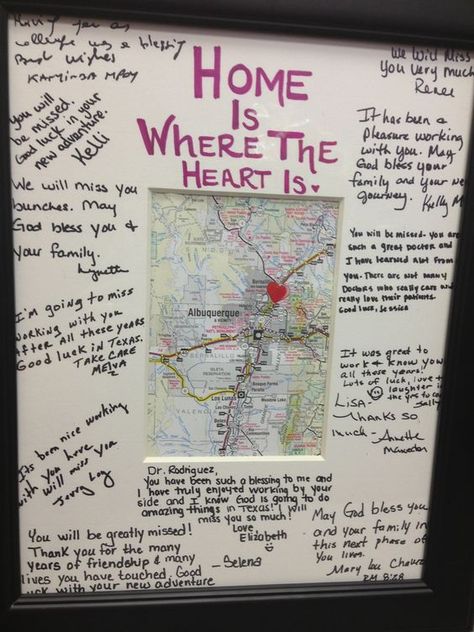 HOME
IS
WHERE THE
HEART IS.
Having you as
colleague was a blessing
Best Wishes
You will
be missed.
Good luck in your
new adventure.
Kelli
We will miss you
bunches. May
God bless you &
your family.
Lynette
I'm going to miss
working with you
After all these years
Good luck in Texas.
TAKE CARE
It's been nice working
with you
will miss you
You will be greatly missed!
Thank you for the many
years of friendship & many
lives you have touched. Good
luck with your new adventure
- Selena
Albuquerque
BERNALILLO
Los Lunas
VALENCIA
Dr. Rodriguez,
You have been such a blessing to me and
I have truly enjoyed working by your
side and I know God is going to do
amazing things in Texas! I will
miss you so much!
Love
Elizabeth
We Will Miss
You Very much
Renee
It has been a
Pleasure working
with you. May
God bless your
family and your new
Journey. Kelly M
You will be missed. you are
such a great doctor and
I have learned a lot from
you. There are not many
Doctors who really care and
really love their patients.
Good luck, Jessica
It was great to
work & know you
all these years!
Lots of luck, love +
laughter in
the yrs to come
Sally
LISA -
Thanks so
much - Annette
May God bless you
and your family in
this next phase of
your lives.
Mary Lou
RM 8:28